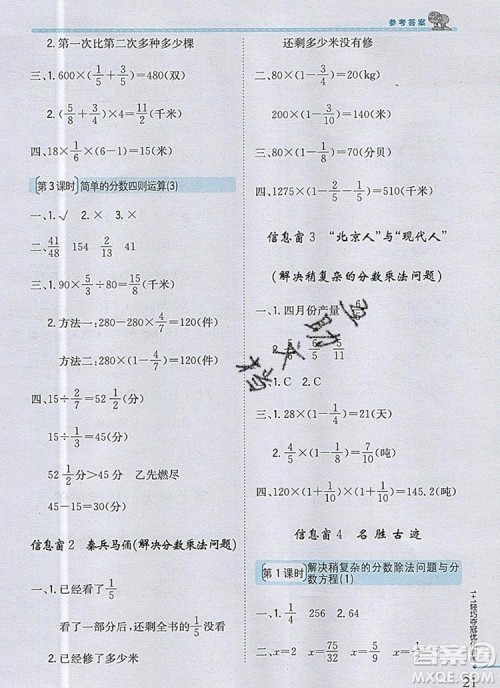 参考答案
2. 第一次比第二次多种多少棵
三、1. 600×(1/5+3/5)=480(双)
2. (5/8+3/4)×4=11/2(千米)
四、18×1/6×(6-1)=15(米)
第3课时 简单的分数四则运算(3)
一、1. √ 2. × 3. ×
二、41/48 154 2/13
三、1. 90×5/3÷5/9=270(千米)
2. 方法一:280-280×4/7=120(件)
方法二:280×(1-4/7)=120(件)
四、15÷2/7=52 1/2(分)
15÷1/3=45(分)
52 1/2分>45分 乙先燃尽
45-15=30(分)
信息窗2 秦兵马俑(解决分数乘法问题)
一、1. 已经看了 1/5
一本书分成 5份,已经看了 1份
2. 已经修了多少米
还剩多少米没有修
二、60×(1-1/3)=20(kg)
200×(1-3/10)=140(千米)
三、80×(1-1/8)=70(分贝)
四、1275×(1-1/5)=1020(米)
信息窗3 “北京人”与“现代人”
(解决稍复杂的分数乘法问题)
一、1. 四月份产量
2. 5/6 6/5 5/11
二、1. C 2. C
三、1. 28×(1+1/7)=32(千米)
2. 1/4×(1+2/5)=7/20(吨)
四、132×(1+1/10)=145.2(米)
信息窗4 名胜古迹
第1课时 解决稍复杂的分数除法问题与分
数方程(1)
一、1. 1/4 256 2. 64
二、x=8 x=75/32 x=5/9 x=
1+1轻巧夺冠优
21
答案圈
MXQE.COM